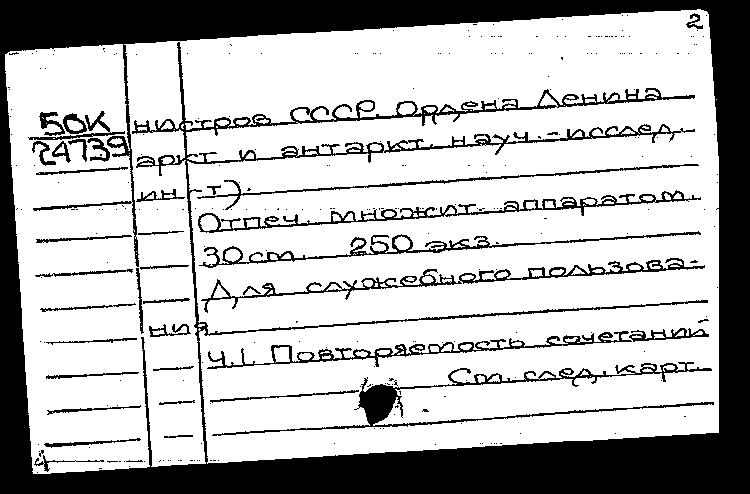 2
БОК
24739
нистров СССР. Ордена Ленина
аркт и антаркт. науч.-исслед.
ин-т).
Отпеч. множит. аппаратом.
30 см. 250 экз.
Для служебного пользова-
ния.
Ч.1. Повторяемость сочетаний
См. след. карт.